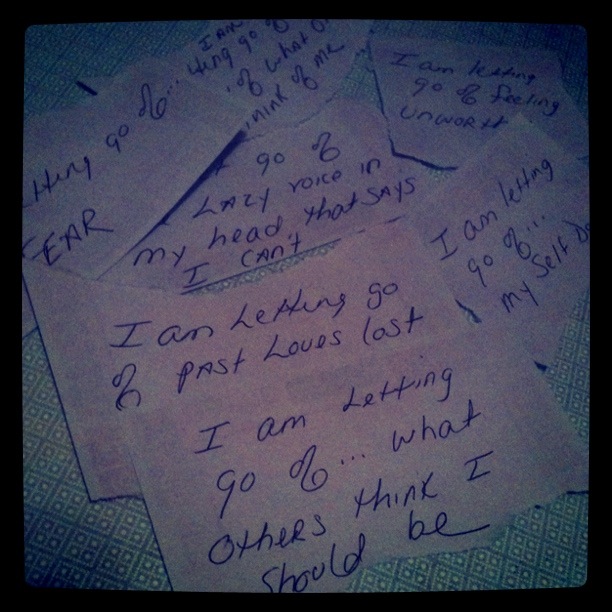 I am
tting go of
of what o
hink of me
I am letting
go of feeling
unworth
tting go of...
FEAR
go of
LAzy voice in
my head that SAYS
I CAN'T
I am letting
go of...
my Self Do
I am Letting go
of PASt Loves lost
I am Letting
go of... what
OtheRs think I
Should be